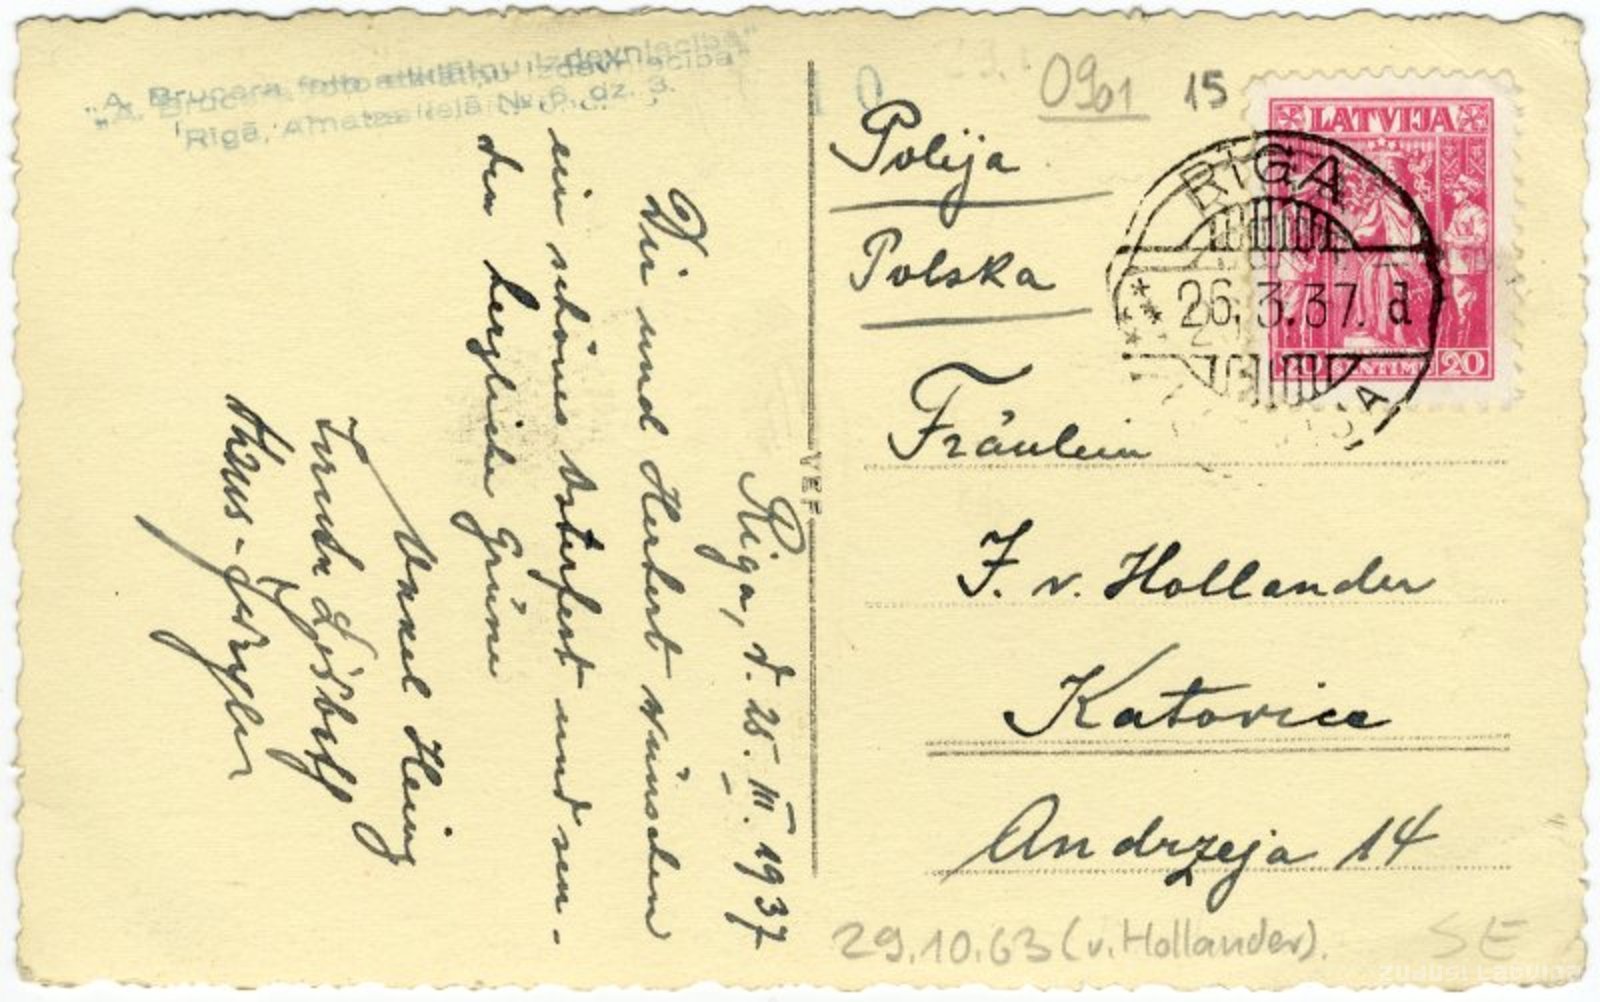 „A. Brucera foto atklātņu izdevniecība"
Rīgā, Amatas ielā № 6, dz. 3.
Riga, d. 25. III. 1937
Dir und Herbert wünschen
ein schönes Osterfest und sen-
den herzliche Grüsse
Onkel Heinz
VEF
0901
15
Polija
Polska
LATVIJA
20 SANTIMU 20
RIGA
26.3.37. d
Fräulein
J. v. Hollander
Katovice
Andrzeja 14
29.10.63 (v. Hollander).
SE
ZUDUSI LATVIJA